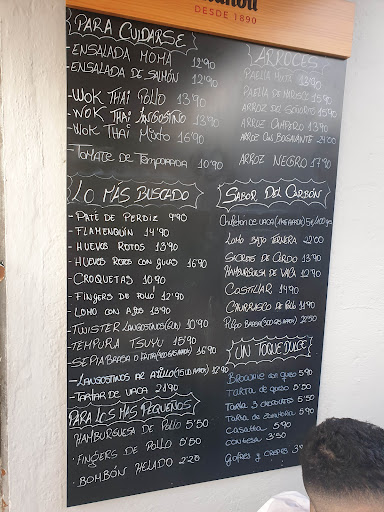 DESDE 1890
PARA CUIDARSE
- ENSALADA MOMA 12'90
- ENSALADA DE SALMÓN 12'90
- WOK THAI POLLO 13'90
- WOK THAI LANGOSTINO 13'90
- WOK THAI MIXTO 16'90
- TOMATE DE TEMPORADA 10'90
LO MAS BUSCADO
- PATE DE PERDIZ 9'90
- FLAMENQUÍN 14'90
- HUEVOS ROTOS 13'90
- HUEVOS ROTOS CON GULAS 16'90
- CROQUETAS 10'90
- FINGERS DE POLLO 12'90
- LOMO CON AJOS 13'90
- TWISTER LANGOSTINOS 10'90
- TEMPURA TSUYU 15'90
- SEPIA BRASA O FRITA 16'90
- LANGOSTINOS AL AJILLO 12'90
- TARTAR DE VACA 21'90
PARA LOS MAS PEQUEÑOS
- HAMBURGUESA DE POLLO 5'50
- FINGERS DE POLLO 5'50
- BOMBÓN HELADO 2'25
ARROCES
PAELLA MIXTA 13'90
PAELLA DE MARISCO 15'90
ARROZ DEL SEÑORITO 15'90
ARROZ CAMPERO 13'90
ARROZ CON BOGAVANTE 21'00
ARROZ NEGRO 17'90
SABOR DEL CARBÓN
CHULETÓN DE VACA
LOMO BAJO TERNERA 22'00
SECRETO DE CERDO 13'90
HAMBURGUESA DE VACA 12'90
COSTILLAR 14'90
CHURRASCO DE POLLO 11'90
PULPO BRASA 22'50
UN TOQUE DULCE
BROWNIE CON HELADO 5'90
TARTA DE QUESO 5'50
TARTA 3 CHOCOLATES 5'50
TARTA DE ZANAHORIA 5'90
CASATTA 5'90
CONTESA 3'50
GOFRES Y CREPES